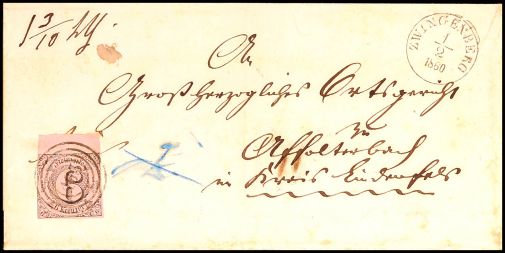 1 3/10 Lth.
ZWINGENBERG
1/2
1860
An
Großherzogliches Ortsgericht
zu
Affolterbach
in Kreis Lindenfels